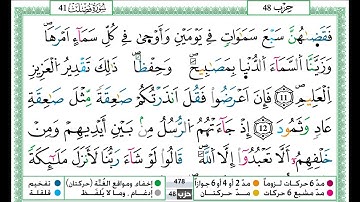 حِزْب 48
سُورَةُ فُصِّلَت 41
فَقَضَىٰهُنَّ سَبْعَ سَمَٰوَاتٍ فِى يَوْمَيْنِ وَأَوْحَىٰ فِى كُلِّ سَمَآءٍ أَمْرَهَاۖ
وَزَيَّنَّا ٱلسَّمَآءَ ٱلدُّنْيَا بِمَصَٰبِيحَۖ وَحِفْظًاۖ ذَٰلِكَ تَقْدِيرُ ٱلْعَزِيزِ
ٱلْعَلِيمِۖ 11 فَإِنْ أَعْرَضُوا۟ فَقُلْ أَنذَرْتُكُمْ صَٰعِقَةً مِّثْلَ صَٰعِقَةِ
عَادٍ وَثَمُودَ 12 إِذْ جَآءَتْهُمُ ٱلرُّسُلُ مِنۢ بَيْنِ أَيْدِيهِمْ وَمِنْ
خَلْفِهِمُۥٓ أَلَّا تَعْبُدُوٓا۟ إِلَّا ٱللَّهَۖ قَالُوا۟ لَوْ شَآءَ رَبُّنَا لَأَنزَلَ مَلَٰٓئِكَةً
مدّ 6 حركات لزوماً مدّ 2 أو 4 أو 6 جوازاً 478 إخفاء ومواقع الغُنَّة (حركتان) تفخيم
مدّ مشبع 6 حركات مدّ حركتان حزب 48 إدغام ، وما لا يُلفَظ قلقلة